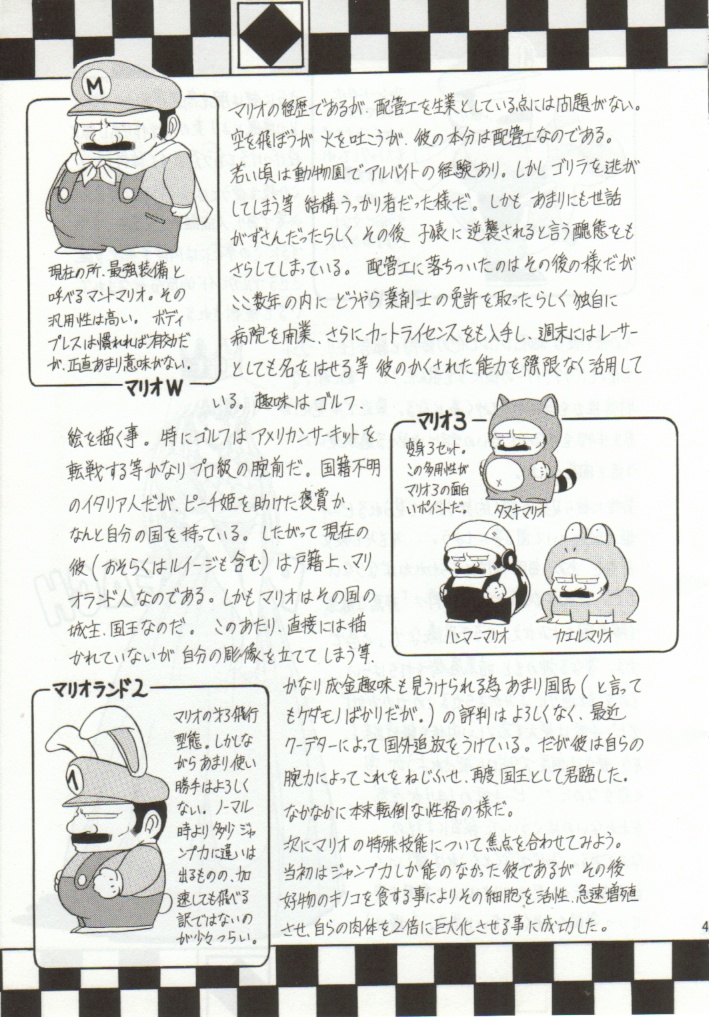 マリオの経歴であるが、配管工を生業としている点には問題がない。
空を飛ぼうが 火を吐こうが、彼の本分は配管工なのである。
若い頃は動物園でアルバイトの経験あり。しかし ゴリラを逃が
してしまう等 結構うっかり者だった様だ。しかも あまりにも世話
がずさんだったらしく その後 子猿に逆襲されると言う醜態をも
さらしてしまっている。 配管工に落ちついたのはその後の様だが
ここ数年の内に どうやら薬剤士の免許を取ったらしく 独自に
病院を開業、さらにカートライセンスをも入手し、週末にはレーサー
としても名をはせる等 彼のかくされた能力を際限なく活用して
いる。趣味はゴルフ、
絵を描く事。特にゴルフはアメリカンサーキットを
転戦する等かなりプロ級の腕前だ。国籍不明
のイタリア人だが、ピーチ姫を助けた褒賞か、
なんと自分の国を持っている。したがって現在の
彼(おそらくはルイージも含む)は戸籍上、マリ
オランド人なのである。しかもマリオはその国の
城主、国王なのだ。 このあたり、直接には描
かれていないが 自分の彫像を立ててしまう等、
かなり成金趣味も見うけられる為 あまり国民(と言って
もケダモノばかりだが。)の評判はよろしくなく、最近
クーデターによって国外追放をうけている。だが彼は自らの
腕力によってこれをねじふせ、再度国王として君臨した。
なかなかに本末転倒な性格の様だ。
次にマリオの特殊技能について焦点を合わせてみよう。
当初はジャンプ力しか能のなかった彼であるが その後
好物のキノコを食する事によりその細胞を活性、急速増殖
させ、自らの肉体を2倍に巨大化させる事に成功した。
M
現在の所、最強装備と
呼べるマントマリオ。その
汎用性は高い。 ボディ
プレスは慣れれば有効だ
が、正直あまり意味がない。
マリオW
マリオ3
変身3セット。
この多用性が
マリオ3の面白
いポイントだ。
タヌキマリオ
ハンマーマリオ
カエルマリオ
マリオランド2
マリオの新飛行
型態。しかしな
がらあまり使い
勝手はよろしく
ない。ノーマル
時より多少ジャ
ンプ力に違いは
出るものの、加
速しても飛べる
訳ではないの
が少々つらい。
4